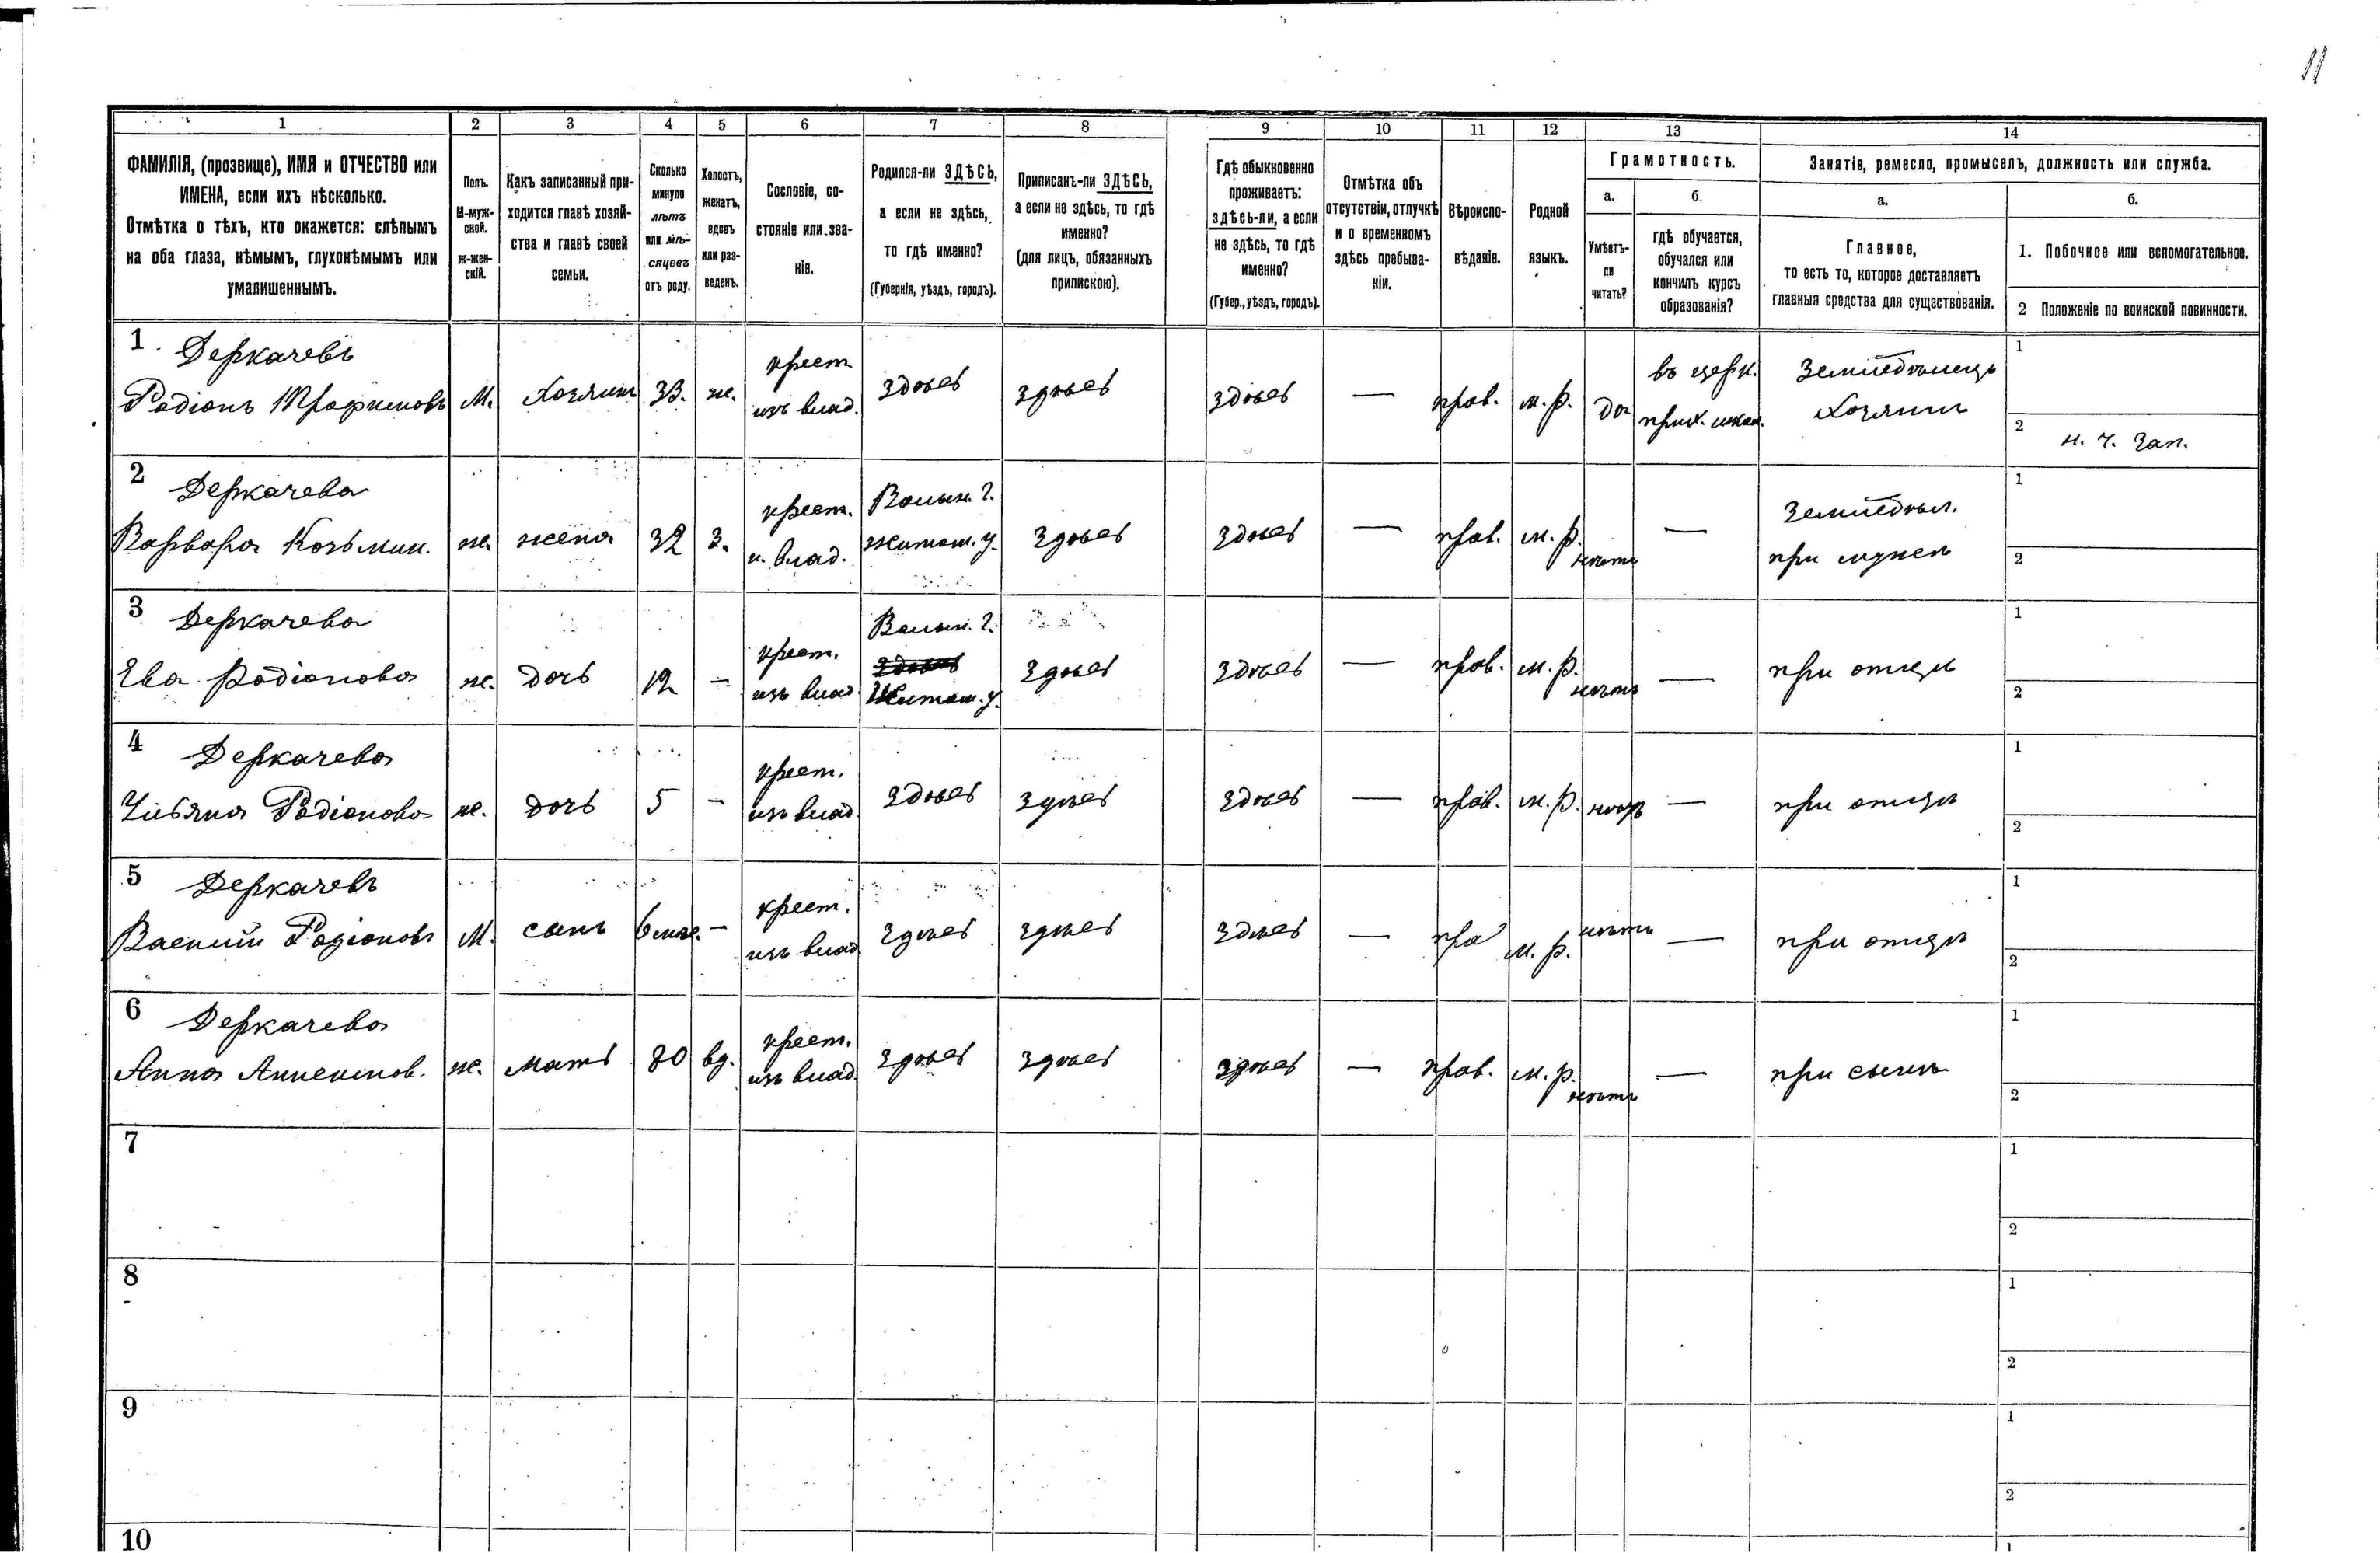 11
1 2 3 4 5 6 7 8 9 10 11 12 13 14
ФАМИЛІЯ, (прозвище), ИМЯ и ОТЧЕСТВО или
ИМЕНА, если ихъ нѣсколько.
Отмѣтка о тѣхъ, кто окажется: слѣпымъ
на оба глаза, нѣмымъ, глухонѣмымъ или
умалишеннымъ.
Полъ.
М-муж-
ской.
ж-жен-
скій.
Какъ записанный при-
ходится главѣ хозяй-
ства и главѣ своей
семьи.
Сколько
минуло
лѣтъ
или мѣ-
сяцевъ
отъ роду.
Холостъ,
женатъ,
вдовъ
или раз-
веденъ.
Сословіе, со-
стояніе или зва-
ніе.
Родился-ли ЗДѢСЬ,
а если не здѣсь,
то гдѣ именно?
(Губернія, уѣздъ, городъ).
Приписанъ-ли ЗДѢСЬ,
а если не здѣсь, то гдѣ
именно?
(для лицъ, обязанныхъ
припискою).
Гдѣ обыкновенно
проживаетъ:
здѣсь-ли, а если
не здѣсь, то гдѣ
именно?
(Губер., уѣздъ, городъ).
Отмѣтка объ
отсутствіи, отлучкѣ
и о временномъ
здѣсь пребыва-
ніи.
Вѣроиспо-
вѣданіе.
Родной
языкъ.
Грамотность.
а.
Умѣетъ-
ли
читать?
б.
гдѣ обучается,
обучался или
кончилъ курсъ
образованія?
Занятіе, ремесло, промыселъ, должность или служба.
а.
Главное,
то есть то, которое доставляетъ
главныя средства для существованія.
б.
1. Побочное или вспомогательное.
2 Положеніе по воинской повинности.
1 Деркачевъ крест въ церк. Земледѣлецъ 1
Родіонъ Трофимовъ М. Хозяинъ 33. ж. изъ влад. здѣсь здѣсь здѣсь — прав. м. р. да прих. школ. Хозяинъ
2 н. ч. Зап.
2 Деркачева крест. Волын. г. Земледѣл. 1
Варвара Козьмин. ж. жена 32 з. и. влад. Житом. у. здѣсь здѣсь — прав. м. р. нѣтъ — при мужѣ 2
3 Деркачева крест. Волын. г. 1
Ева Родіонова ж. дочь 12 — изъ влад здѣсь Житом. у. здѣсь здѣсь — прав. м. р. нѣтъ — при отцѣ 2
4 Деркачева крест. 1
Ульяна Родіонова ж. дочь 5 — изъ влад. здѣсь здѣсь здѣсь — прав. м. р. нѣтъ — при отцѣ 2
5 Деркачевъ крест. 1
Василій Родіоновъ М. сынъ 6 мѣс. — изъ влад. здѣсь здѣсь здѣсь — пра м. р. нѣтъ — при отцѣ 2
6 Деркачева крест. 1
Анна ж. мать вд. изъ влад. здѣсь здѣсь здѣсь — прав. м. р. нѣтъ — при сынѣ 2
7 1
2
8 1
2
9 1
2
10 1